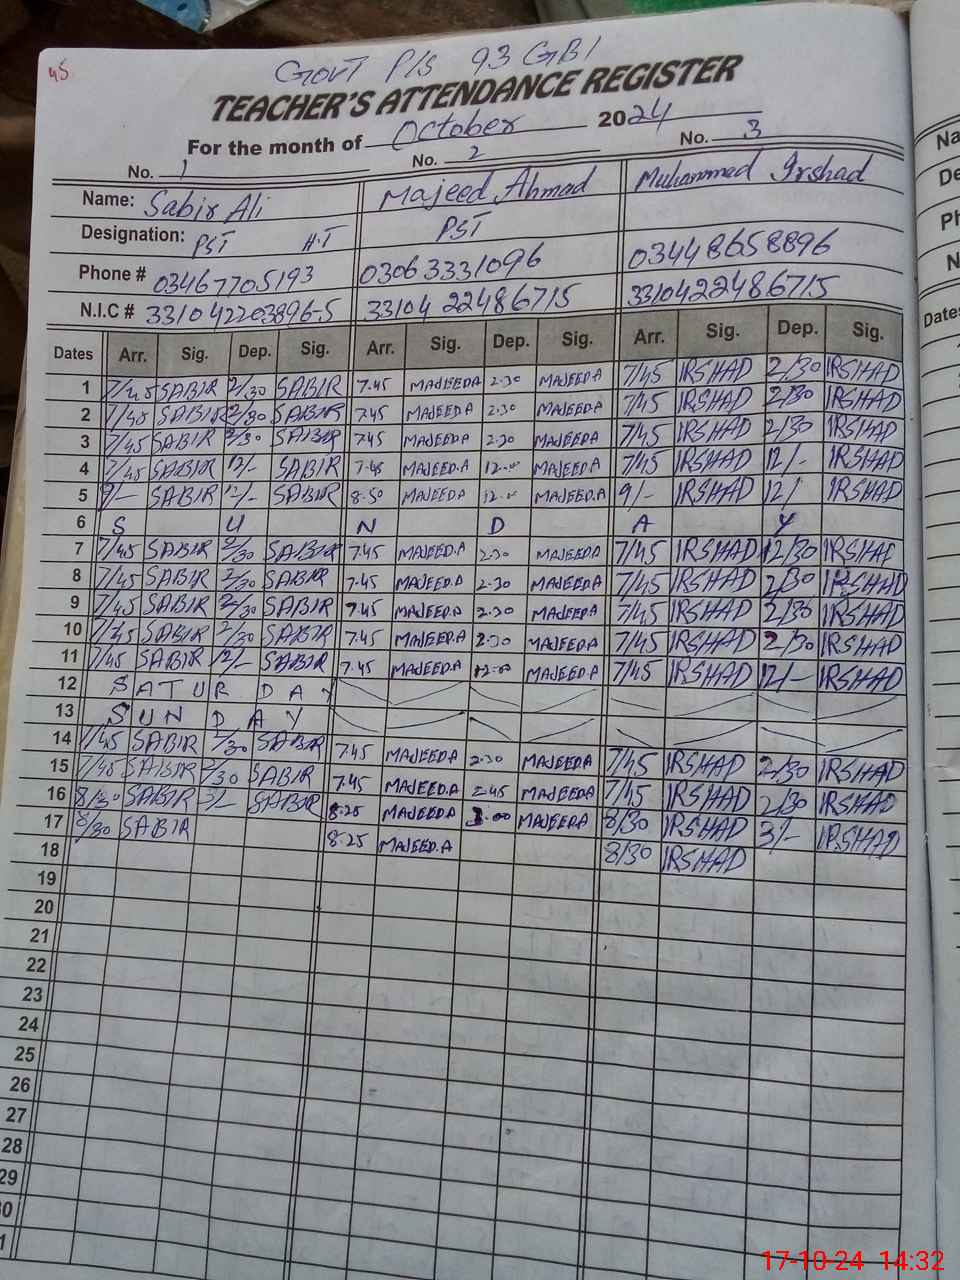 45
GOVT P/S 93 GB1
TEACHER'S ATTENDANCE REGISTER
For the month of October 2024
No. 1 No. 2 No. 3
Name: Sabir Ali Majeed Ahmad Muhammad Irshad
Designation: PST H.T PST
Phone # 03467705193 03063331096 03448658896
N.I.C # 331042203896-5 3310422486715 3310422486715
Dates Arr. Sig. Dep. Sig. Arr. Sig. Dep. Sig. Arr. Sig. Dep. Sig.
1 7/45 SABIR 2/30 SABIR 7.45 MAJEED.A 2.30 MAJEED.A 7/45 IRSHAD 2/30 IRSHAD
2 7/45 SABIR 2/30 SABIR 7.45 MAJEED.A 2.30 MAJEED.A 7/45 IRSHAD 2/30 IRSHAD
3 7/45 SABIR 2/30 SABIR 7.45 MAJEED.A 2.30 MAJEED.A 7/45 IRSHAD 2/30 IRSHAD
4 7/45 SABIR 12/- SABIR 7.45 MAJEED.A 12.00 MAJEED.A 7/45 IRSHAD 12/- IRSHAD
5 9/- SABIR 12/- SABIR 8.50 MAJEED.A 12.00 MAJEED.A 9/- IRSHAD 12/ IRSHAD
6 S U N D A Y
7 7/45 SABIR 2/30 SABIR 7.45 MAJEED.A 2.30 MAJEED.A 7/45 IRSHAD 12/30 IRSHAD
8 7/45 SABIR 2/30 SABIR 7.45 MAJEED.A 2.30 MAJEED.A 7/45 IRSHAD 2/30 IRSHAD
9 7/45 SABIR 2/30 SABIR 7.45 MAJEED.A 2.30 MAJEED.A 7/45 IRSHAD 2/30 IRSHAD
10 7/45 SABIR 2/30 SABIR 7.45 MAJEED.A 2.30 MAJEED.A 7/45 IRSHAD 2/30 IRSHAD
11 7/45 SABIR 12/- SABIR 7.45 MAJEED.A 12.00 MAJEED.A 7/45 IRSHAD 12/- IRSHAD
12 S A T U R D A Y
13 S U N D A Y
14 7/45 SABIR 2/30 SABIR 7.45 MAJEED.A 2.30 MAJEED.A 7/45 IRSHAD 2/30 IRSHAD
15 7/45 SABIR 2/30 SABIR 7.45 MAJEED.A 2.45 MAJEED.A 7/45 IRSHAD 2/30 IRSHAD
16 8/30 SABIR 3/- SABIR 8.25 MAJEED.A 3.00 MAJEED.A 8/30 IRSHAD 3/- IRSHAD
17 8/30 SABIR 8.25 MAJEED.A 8/30 IRSHAD
18
19
20
21
22
23
24
25
26
27
28
29
30
1
Na
De
Ph
N
Dates
17-10-24 14:32